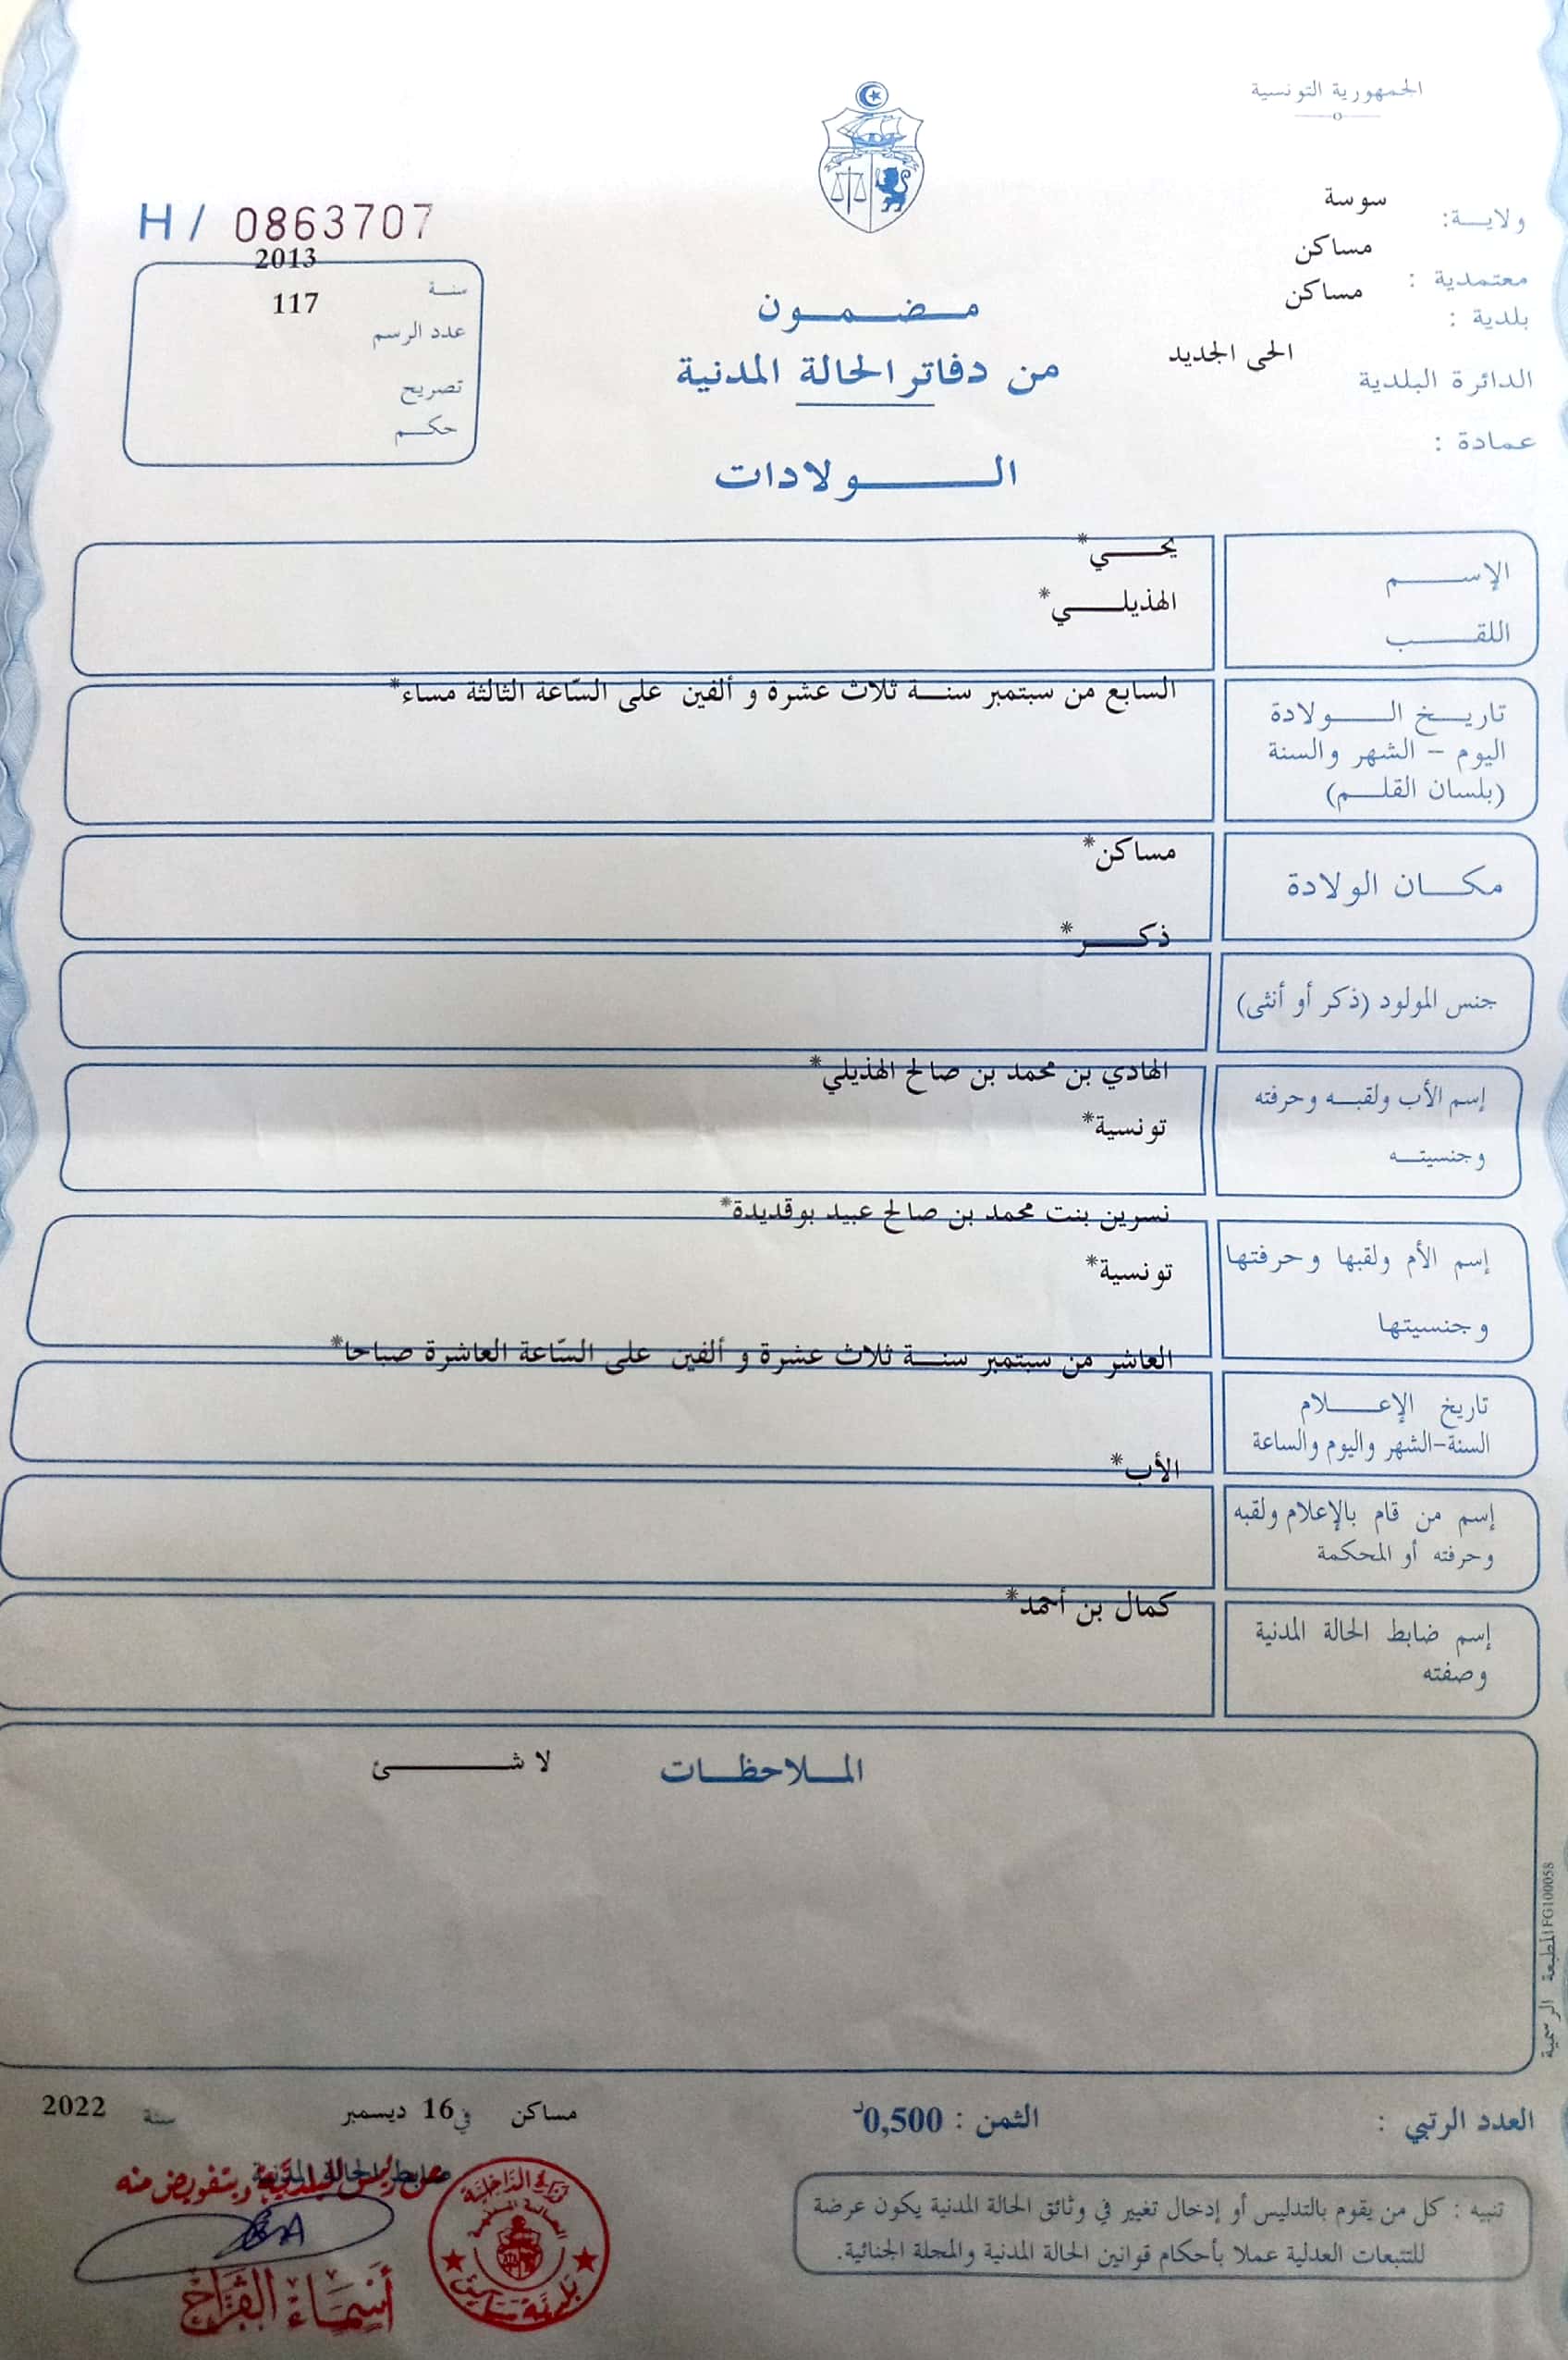 الجمهورية التونسية
ولايـــة: سوسة
معتمدية : مساكن
بلدية : مساكن
الدائرة البلدية الحى الجديد
عمادة :
H / 0863707
سنـة 2013
عدد الرسم 117
تصريح
حكـم
مـضـمـون
من دفاتر الحالة المدنية
الـــولادات
الإســـم يحـــي*
اللقـــب الهذيلـــي*
تاريـخ الـــولادة السابع من سبتمبر سنـة ثلاث عشرة و ألفين على السّاعة الثالثة مساء*
اليوم – الشهر والسنة
(بلسان القلـم)
مكـــان الولادة مساكن*
جنس المولود (ذكر أو أنثى) ذكـــر*
إسم الأب ولقبـه وحرفته الهادي بن محمد بن صالح الهذيلي*
وجنسيتـه تونسية*
إسم الأم ولقبها وحرفتها نسرين بنت محمد بن صالح عبيد بوقديدة*
وجنسيتها تونسية*
تاريخ الإعـــلام العاشر من سبتمبر سنـة ثلاث عشرة و ألفين على السّاعة العاشرة صباحا*
السنة-الشهر واليوم والساعة
إسم من قام بالإعلام ولقبه الأب*
وحرفته أو المحكمة
إسم ضابط الحالة المدنية كمال بن أحمد*
وصفته
المـلاحظـات لا شـــئ
المطبعة الرسمية FG100058
العدد الرتبي :
الثمن : 0,500د
مساكن في 16 ديسمبر سنة 2022
ضابط الحالة المدنية
عن رئيس البلدية وبتفويض منه
أسماء الفراج
وزارة الداخلية
بلدية مساكن
تنبيه : كل من يقوم بالتدليس أو إدخال تغيير في وثائق الحالة المدنية يكون عرضة
للتتبعات العدلية عملا بأحكام قوانين الحالة المدنية والمجلة الجنائية.